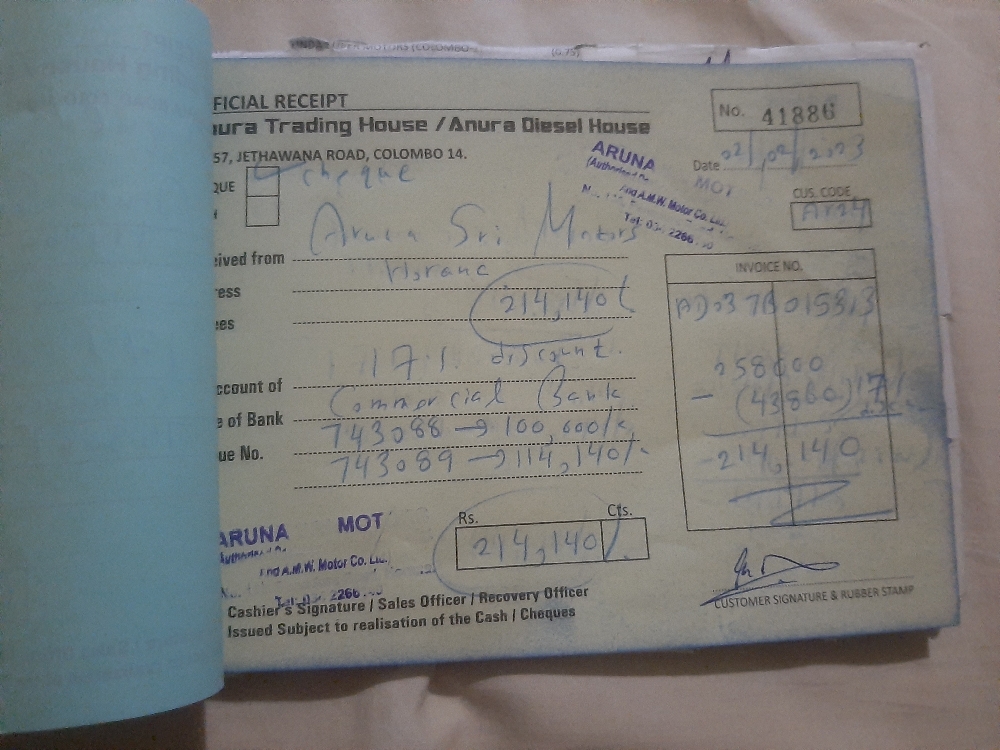 (COLOMBO-
(0.75)
FICIAL RECEIPT
No. 41886
ura Trading House / Anura Diesel House
57, JETHAWANA ROAD, COLOMBO 14.
Date 02/02/2023
ARUNA
MOT
And A.M.W. Motor Co. Ltd.
QUE cheque
CUS. CODE
eived from Aruna Sri Motors
ress Horana
INVOICE NO.
ees 214,140/
AD037B 015313
17% discount.
258000
ccount of
- (43860) 17%
e of Bank Commercial Bank
ue No. 743088 → 100,000/
743089 → 114,140/-
214,140
ARUNA MOT
And A.M.W. Motor Co. Ltd.
Rs. Cts.
214,140/
Cashier's Signature / Sales Officer / Recovery Officer
CUSTOMER SIGNATURE & RUBBER STAMP
Issued Subject to realisation of the Cash / Cheques